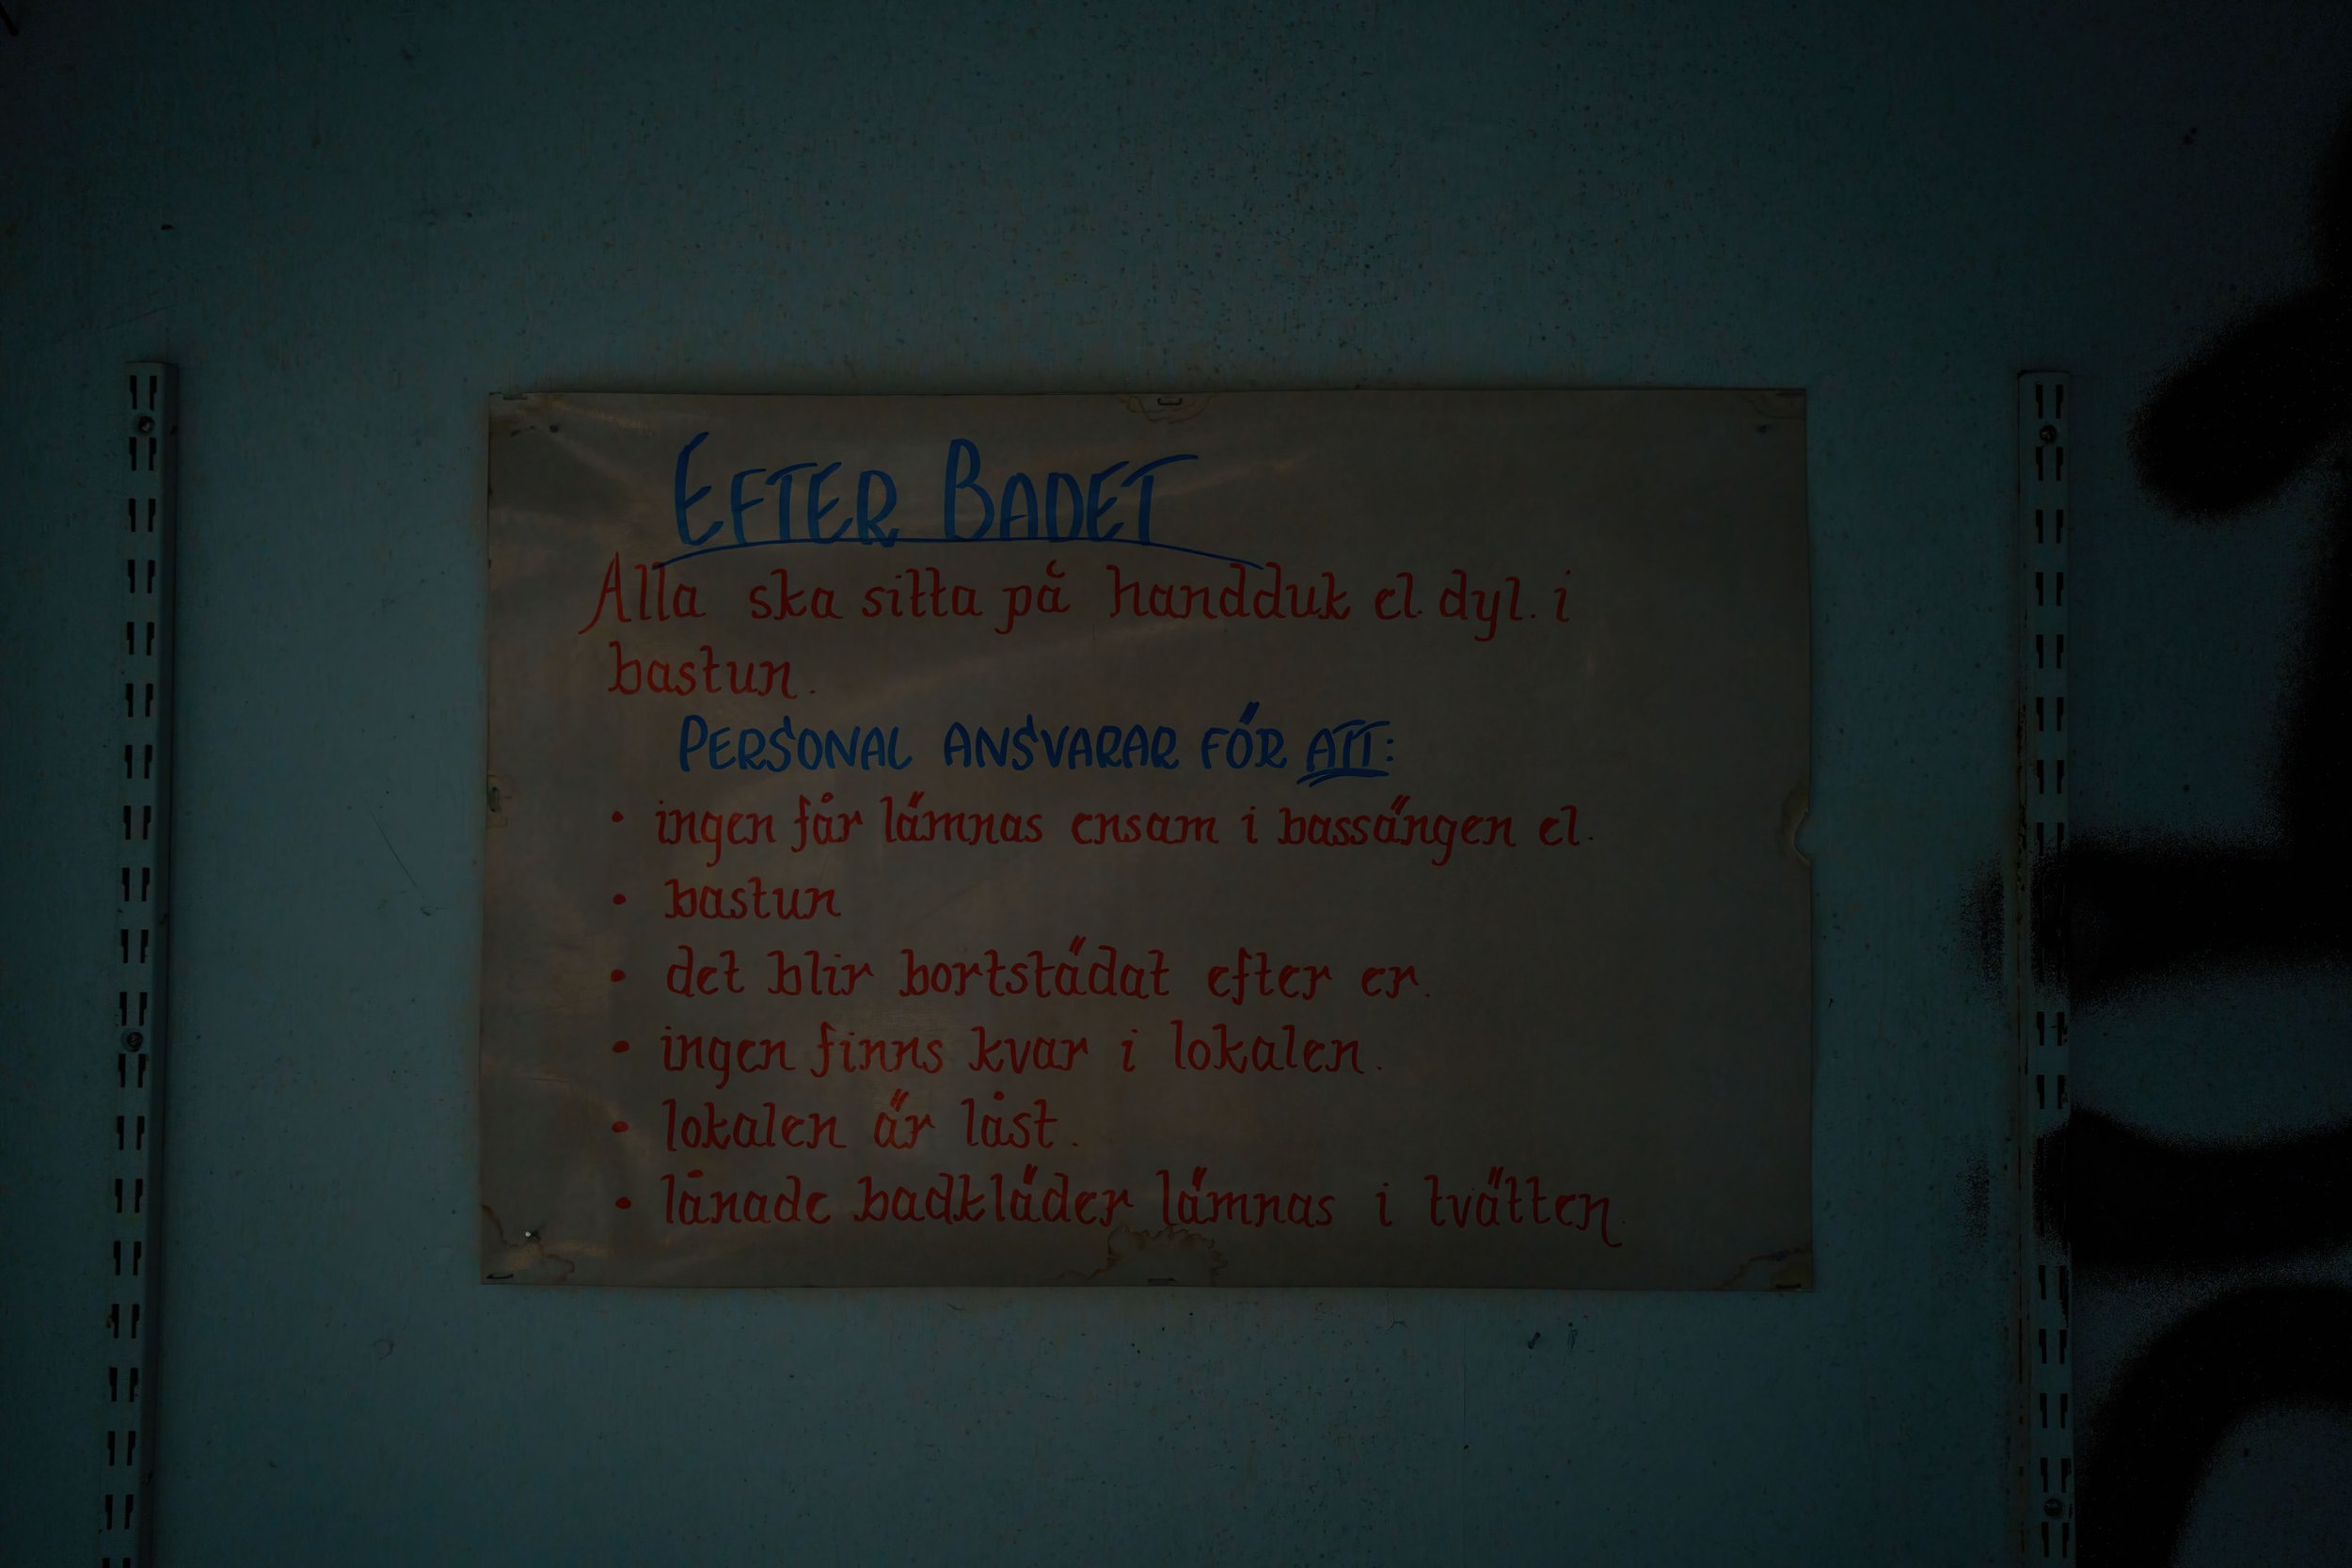 EFTER BADET
Alla ska sitta på handduk el. dyl. i
bastun.
PERSONAL ANSVARAR FÖR ATT:
• ingen får lämnas ensam i bassängen el.
• bastun
• det blir bortstädat efter er.
• ingen finns kvar i lokalen.
• lokalen är låst.
• lånade badkläder lämnas i tvätten.